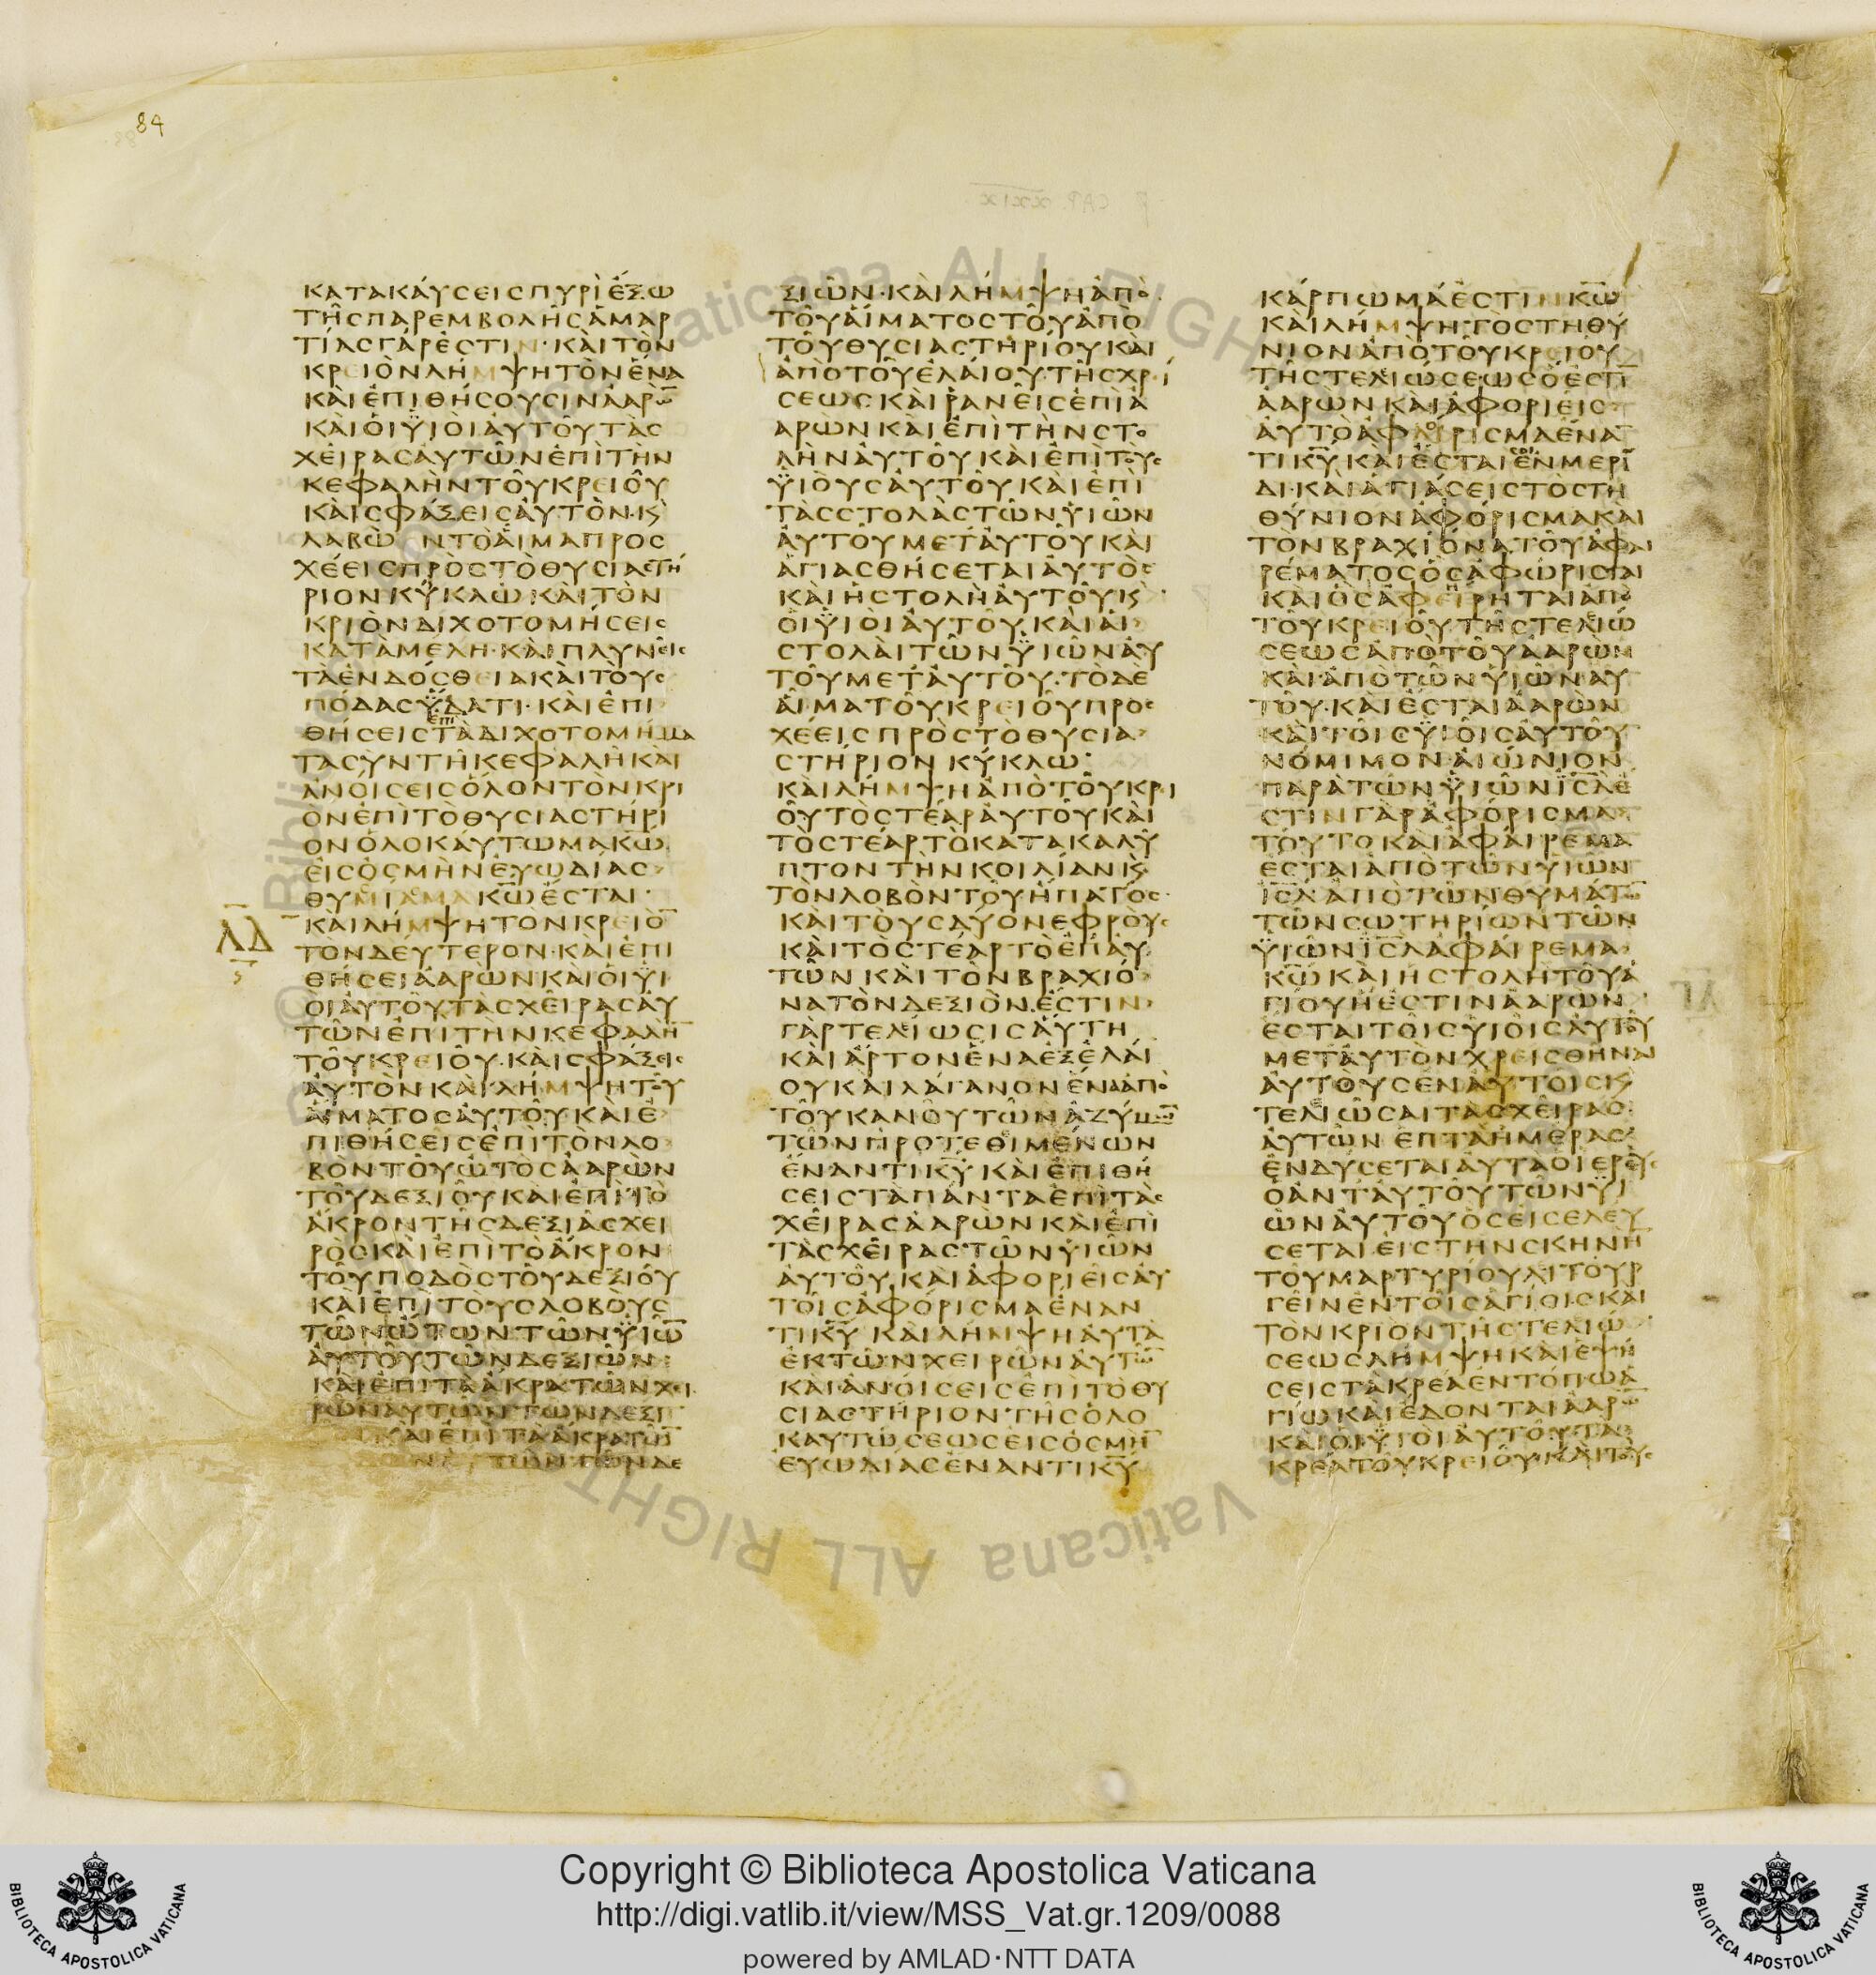 84
ΚΑΤΑΚΑΥϹΕΙϹΠΥΡΙΕΞΩ
ΤΗϹΠΑΡΕΜΒΟΛΗϹΑΜΑΡ
ΤΙΑϹΓΑΡΕϹΤΙΝ·ΚΑΙΤΟΝ
ΚΡΕΙΟΝΛΗΜΨΗΤΟΝΕΝΑ
ΚΑΙΕΠΙΘΗϹΟΥϹΙΝΑΑΡΩ̅
ΚΑΙΟΙΫΙΟΙΑΥΤΟΥΤΑϹ
ΧΕΙΡΑϹΑΥΤΩΝΕΠΙΤΗΝ
ΚΕΦΑΛΗΝΤΟΥΚΡΕΙΟΥ
ΚΑΙϹΦΑΞΕΙϹΑΥΤΟΝ·Κ̀
ΛΑΒΩΝΤΟΑΙΜΑΠΡΟϹ
ΧΕΕΙϹΠΡΟϹΤΟΘΥϹΙΑϹΤΗ
ΡΙΟΝΚΥΚΛΩ·ΚΑΙΤΟΝ
ΚΡΙΟΝΔΙΧΟΤΟΜΗϹΕΙϹ
ΚΑΤΑΜΕΛΗ·ΚΑΙΠΛΥΝΕΙϹ
ΤΑΕΝΔΟϹΘΕΙΑΚΑΙΤΟΥϹ
ΠΟΔΑϹΫΔΑΤΙ·ΚΑΙΕΠΙ
ΕΠΙ
ΘΗϹΕΙϹΤΑΔΙΧΟΤΟΜΗΜΑ
ΤΑϹΥΝΤΗΚΕΦΑΛΗΚΑΙ
ΑΝΟΙϹΕΙϹΟΛΟΝΤΟΝΚΡΙ
ΟΝΕΠΙΤΟΘΥϹΙΑϹΤΗΡΙ
ΟΝΟΛΟΚΑΥΤΩΜΑΚΩ̅
ΕΙϹΟϹΜΗΝΕΥΩΔΙΑϹ
ΘΥΜΙΑΜΑΚΩ̅ΕϹΤΑΙ·
ΛΔ
ΚΑΙΛΗΜΨΗΤΟΝΚΡΕΙΟ̅
ΤΟΝΔΕΥΤΕΡΟΝ·ΚΑΙΕΠΙ
ΘΗϹΕΙΑΑΡΩΝΚΑΙΟΙΫΙ
ΟΙΑΥΤΟΥΤΑϹΧΕΙΡΑϹΑΥ
ΤΩΝΕΠΙΤΗΝΚΕΦΑΛΗ̅
ΤΟΥΚΡΕΙΟΥ·ΚΑΙϹΦΑΞΕΙϹ
ΑΥΤΟΝΚΑΙΛΗΜΨΗΤΟΥ
ΑΙΜΑΤΟϹΑΥΤΟΥΚΑΙΕ
ΠΙΘΗϹΕΙϹΕΠΙΤΟΝΛΟ
ΒΟΝΤΟΥΩΤΟϹΑΑΡΩΝ
ΤΟΥΔΕΞΙΟΥΚΑΙΕΠΙΤΟ
ΑΚΡΟΝΤΗϹΔΕΞΙΑϹΧΕΙ
ΡΟϹΚΑΙΕΠΙΤΟΑΚΡΟΝ
ΤΟΥΠΟΔΟϹΤΟΥΔΕΞΙΟΥ
ΚΑΙΕΠΙΤΟΥϹΛΟΒΟΥϹ
ΤΩΝΩΤΩΝΤΩΝΫΙΩ̅
ΑΥΤΟΥΤΩΝΔΕΞΙΩΝ
ΚΑΙΕΠΙΤΑΑΚΡΑΤΩΝΧΕΙ
ΡΩΝΑΥΤΩΝΤΩΝΔΕΞΙ
ΚΑΙΕΠΙΤΑΑΚΡΑΤΩ̅
ΤΩΝΔΕ
ΞΙΩΝ·ΚΑΙΛΗΜΨΗΑΠΟ
ΤΟΥΑΙΜΑΤΟϹΤΟΥΑΠΟ
ΤΟΥΘΥϹΙΑϹΤΗΡΙΟΥΚΑΙ
ΑΠΟΤΟΥΕΛΑΙΟΥΤΗϹΧΡΕΙ
ϹΕΩϹΚΑΙΡΑΝΕΙϹΕΠΙΑ
ΑΡΩΝΚΑΙΕΠΙΤΗΝϹΤΟ
ΛΗΝΑΥΤΟΥΚΑΙΕΠΙΤΟΥϹ
ΫΙΟΥϹΑΥΤΟΥΚΑΙΕΠΙ
ΤΑϹϹΤΟΛΑϹΤΩΝΫΙΩΝ
ΑΥΤΟΥΜΕΤΑΥΤΟΥΚΑΙ
ΑΓΙΑϹΘΗϹΕΤΑΙΑΥΤΟϹ
ΚΑΙΗϹΤΟΛΗΑΥΤΟΥΚ̀
ΟΙΫΙΟΙΑΥΤΟΥΚΑΙΑΙ
ϹΤΟΛΑΙΤΩΝΫΙΩΝΑΥ
ΤΟΥΜΕΤΑΥΤΟΥ·ΤΟΔΕ
ΑΙΜΑΤΟΥΚΡΕΙΟΥΠΡΟϹ
ΧΕΕΙϹΠΡΟϹΤΟΘΥϹΙΑ
ϹΤΗΡΙΟΝΚΥΚΛΩ·
ΚΑΙΛΗΜΨΗΑΠΟΤΟΥΚΡΙ
ΟΥΤΟϹΤΕΑΡΑΥΤΟΥΚΑΙ
ΤΟϹΤΕΑΡΤΟΚΑΤΑΚΑΛΥ
ΠΤΟΝΤΗΝΚΟΙΛΙΑΝΚ̀
ΤΟΝΛΟΒΟΝΤΟΥΗΠΑΤΟϹ
ΚΑΙΤΟΥϹΔΥΟΝΕΦΡΟΥϹ
ΚΑΙΤΟϹΤΕΑΡΤΟΕΠΑΥ
ΤΩΝΚΑΙΤΟΝΒΡΑΧΙΟ
ΝΑΤΟΝΔΕΞΙΟΝ·ΕϹΤΙΝ
ΓΑΡΤΕΛΙΩϹΙϹΑΥΤΗ
ΚΑΙΑΡΤΟΝΕΝΑΕΞΕΛΑΙ
ΟΥΚΑΙΛΑΓΑΝΟΝΕΝΑΑΠΟ
ΤΟΥΚΑΝΟΥΤΩΝΑΖΥΜΩ̅
ΤΩΝΠΡΟΤΕΘΙΜΕΝΩΝ
ΕΝΑΝΤΙΚ̅Υ̅ΚΑΙΕΠΙΘΗ
ϹΕΙϹΤΑΠΑΝΤΑΕΠΙΤΑϹ
ΧΕΙΡΑϹΑΑΡΩΝΚΑΙΕΠΙ
ΤΑϹΧΕΙΡΑϹΤΩΝΫΙΩΝ
ΑΥΤΟΥ·ΚΑΙΑΦΟΡΙΕΙϹΑΥ
ΤΟΙϹΑΦΟΡΙϹΜΑΕΝΑΝ
ΤΙΚ̅Υ̅ΚΑΙΛΗΜΨΗΑΥΤΑ
ΕΚΤΩΝΧΕΙΡΩΝΑΥΤΩ̅
ΚΑΙΑΝΟΙϹΕΙϹΕΠΙΤΟΘΥ
ϹΙΑϹΤΗΡΙΟΝΤΗϹΟΛΟ
ΚΑΥΤΩϹΕΩϹΕΙϹΟϹΜΗ̅
ΕΥΩΔΙΑϹΕΝΑΝΤΙΚ̅Υ̅
ΚΑΡΠΩΜΑΕϹΤΙΝΚ̅Ω̅
ΚΑΙΛΗΜΨΗΤΟϹΤΗΘΥ
ΝΙΟΝΑΠΟΤΟΥΚΡΕΙΟΥ
ΤΗϹΤΕΛΙΩϹΕΩϹΟΕϹΤΙ̅
ΑΑΡΩΝΚΑΙΑΦΟΡΙΕΙϹ
ΑΥΤΟΑΦΟΡΙϹΜΑΕΝΑ̅
ΤΙΚ̅Υ̅ΚΑΙΕϹΤΑΙϹΟΙΕΝΜΕΡΙ
ΔΙ·ΚΑΙΑΓΙΑϹΕΙϹΤΟϹΤΗ
ΘΥΝΙΟΝΑΦΟΡΙϹΜΑΚΑΙ
ΤΟΝΒΡΑΧΙΟΝΑΤΟΥΑΦΑΙ
ΡΕΜΑΤΟϹΟϹΑΦΩΡΙϹΤΑΙ
ΚΑΙΟϹΑΦΕΙΡΗΤΑΙΑΠΟ
ΤΟΥΚΡΕΙΟΥΤΗϹΤΕΛΙΩ
ϹΕΩϹΑΠΟΤΟΥΑΑΡΩΝ
ΚΑΙΑΠΟΤΩΝΫΙΩΝΑΥ
ΤΟΥ·ΚΑΙΕϹΤΑΙΑΑΡΩΝ
ΚΑΙΤΟΙϹΫΙΟΙϹΑΥΤΟΥ
ΝΟΜΙΜΟΝΑΙΩΝΙΟΝ
ΠΑΡΑΤΩΝΫΙΩΝΙ̅Ϲ̅Λ̅Ε
ϹΤΙΝΓΑΡΑΦΟΡΙϹΜΑ
ΤΟΥΤΟΚΑΙΑΦΑΙΡΕΜΑ
ΕϹΤΑΙΑΠΟΤΩΝΫΙΩΝ
Ι̅Ϲ̅Λ̅ΑΠΟΤΩΝΘΥΜΑΤΩ̅
ΤΩΝϹΩΤΗΡΙΩΝΤΩΝ
ΫΙΩΝΙ̅Ϲ̅Λ̅ΑΦΑΙΡΕΜΑ
Κ̅Ω̅ΚΑΙΗϹΤΟΛΗΤΟΥΑ
ΓΙΟΥΗΕϹΤΙΝΑΑΡΩΝ
ΕϹΤΑΙΤΟΙϹΥΙΟΙϹΑΥΤΟΥ
ΜΕΤΑΥΤΟΝΧΡΕΙϹΘΗΝΑΙ
ΑΥΤΟΥϹΕΝΑΥΤΟΙϹΚ̀
ΤΕΛΙΩϹΑΙΤΑϹΧΕΙΡΑϹ
ΑΥΤΩΝΕΠΤΑΗΜΕΡΑϹ
ΕΝΔΥϹΕΤΑΙΑΥΤΑΟΙΕΡΕΥϹ
ΟΑΝΤΑΥΤΟΥΤΩΝΫΙ
ΩΝΑΥΤΟΥΟϹΕΙϹΕΛΕΥ
ϹΕΤΑΙΕΙϹΤΗΝϹΚΗΝΗ̅
ΤΟΥΜΑΡΤΥΡΙΟΥΛΙΤΟΥΡ
ΓΕΙΝΕΝΤΟΙϹΑΓΙΟΙϹΚΑΙ
ΤΟΝΚΡΙΟΝΤΗϹΤΕΛΙΩ
ϹΕΩϹΛΗΜΨΗΚΑΙΕΨΗ
ϹΕΙϹΤΑΚΡΕΑΕΝΤΟΠΩΑ
ΓΙΩΚΑΙΕΔΟΝΤΑΙΑΑΡΩ̅
ΚΑΙΟΙΫΙΟΙΑΥΤΟΥΤΑ
ΚΡΕΑΤΟΥΚΡΕΙΟΥ·ΚΑΙΤΟΥϹ
BIBLIOTECA APOSTOLICA VATICANA
Copyright © Biblioteca Apostolica Vaticana
http://digi.vatlib.it/view/MSS_Vat.gr.1209/0088
powered by AMLAD·NTT DATA
BIBLIOTECA APOSTOLICA VATICANA